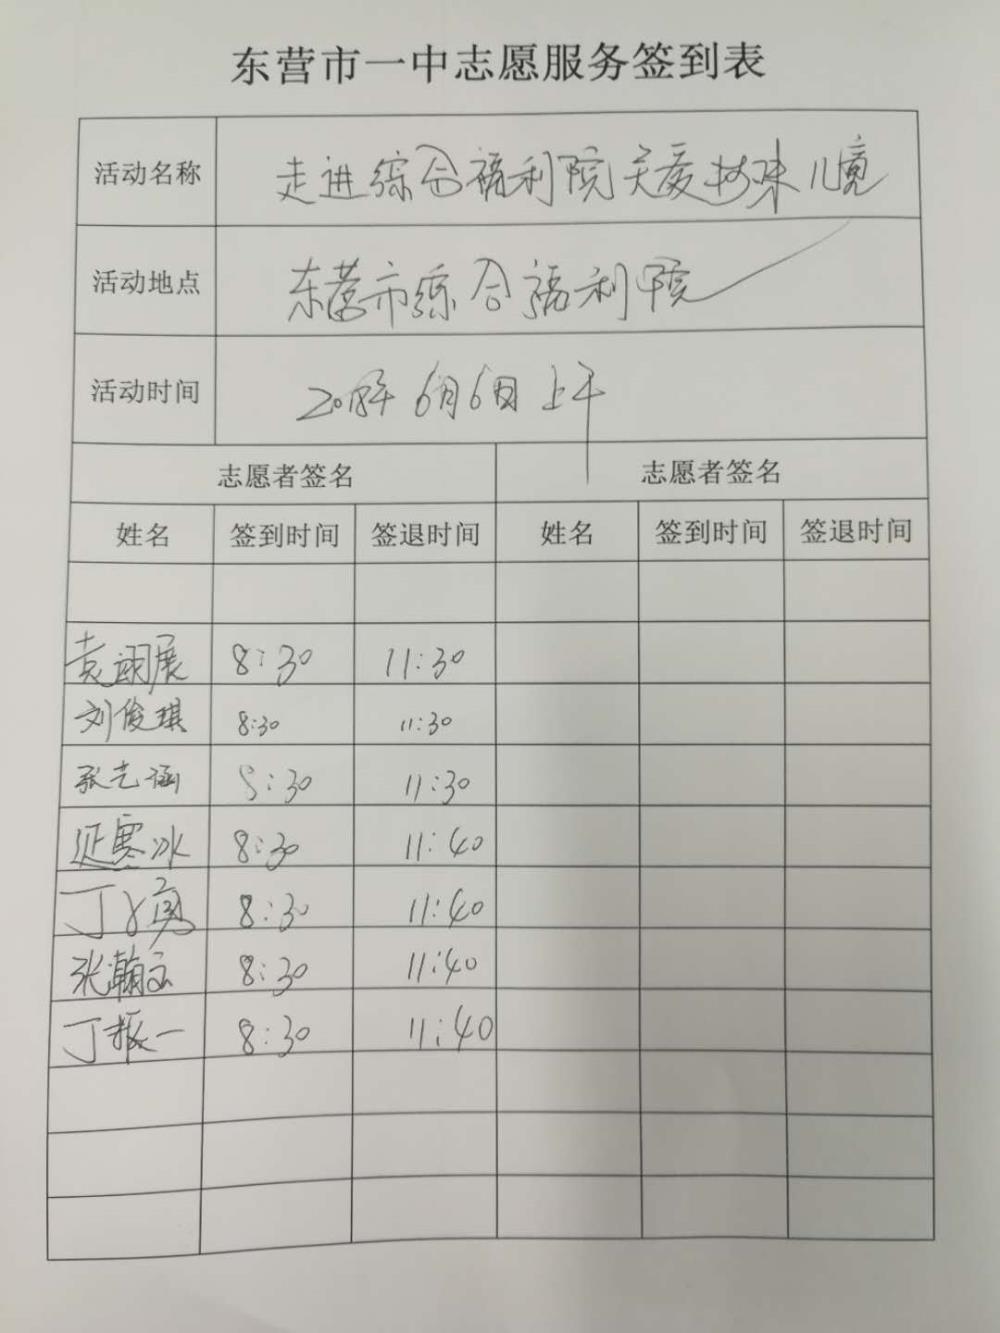 东营市一中志愿服务签到表
活动名称 走进综合福利院关爱特殊儿童
活动地点 东营市综合福利院
活动时间 2018年6月6日上午
志愿者签名 志愿者签名
姓名 签到时间 签退时间 姓名 签到时间 签退时间
袁翊展 8:30 11:30
刘俊琪 8:30 11:30
张艺涵 8:30 11:30
延寒冰 8:30 11:40
丁 8:30 11:40
张瀚文 8:30 11:40
丁振一 8:30 11:40